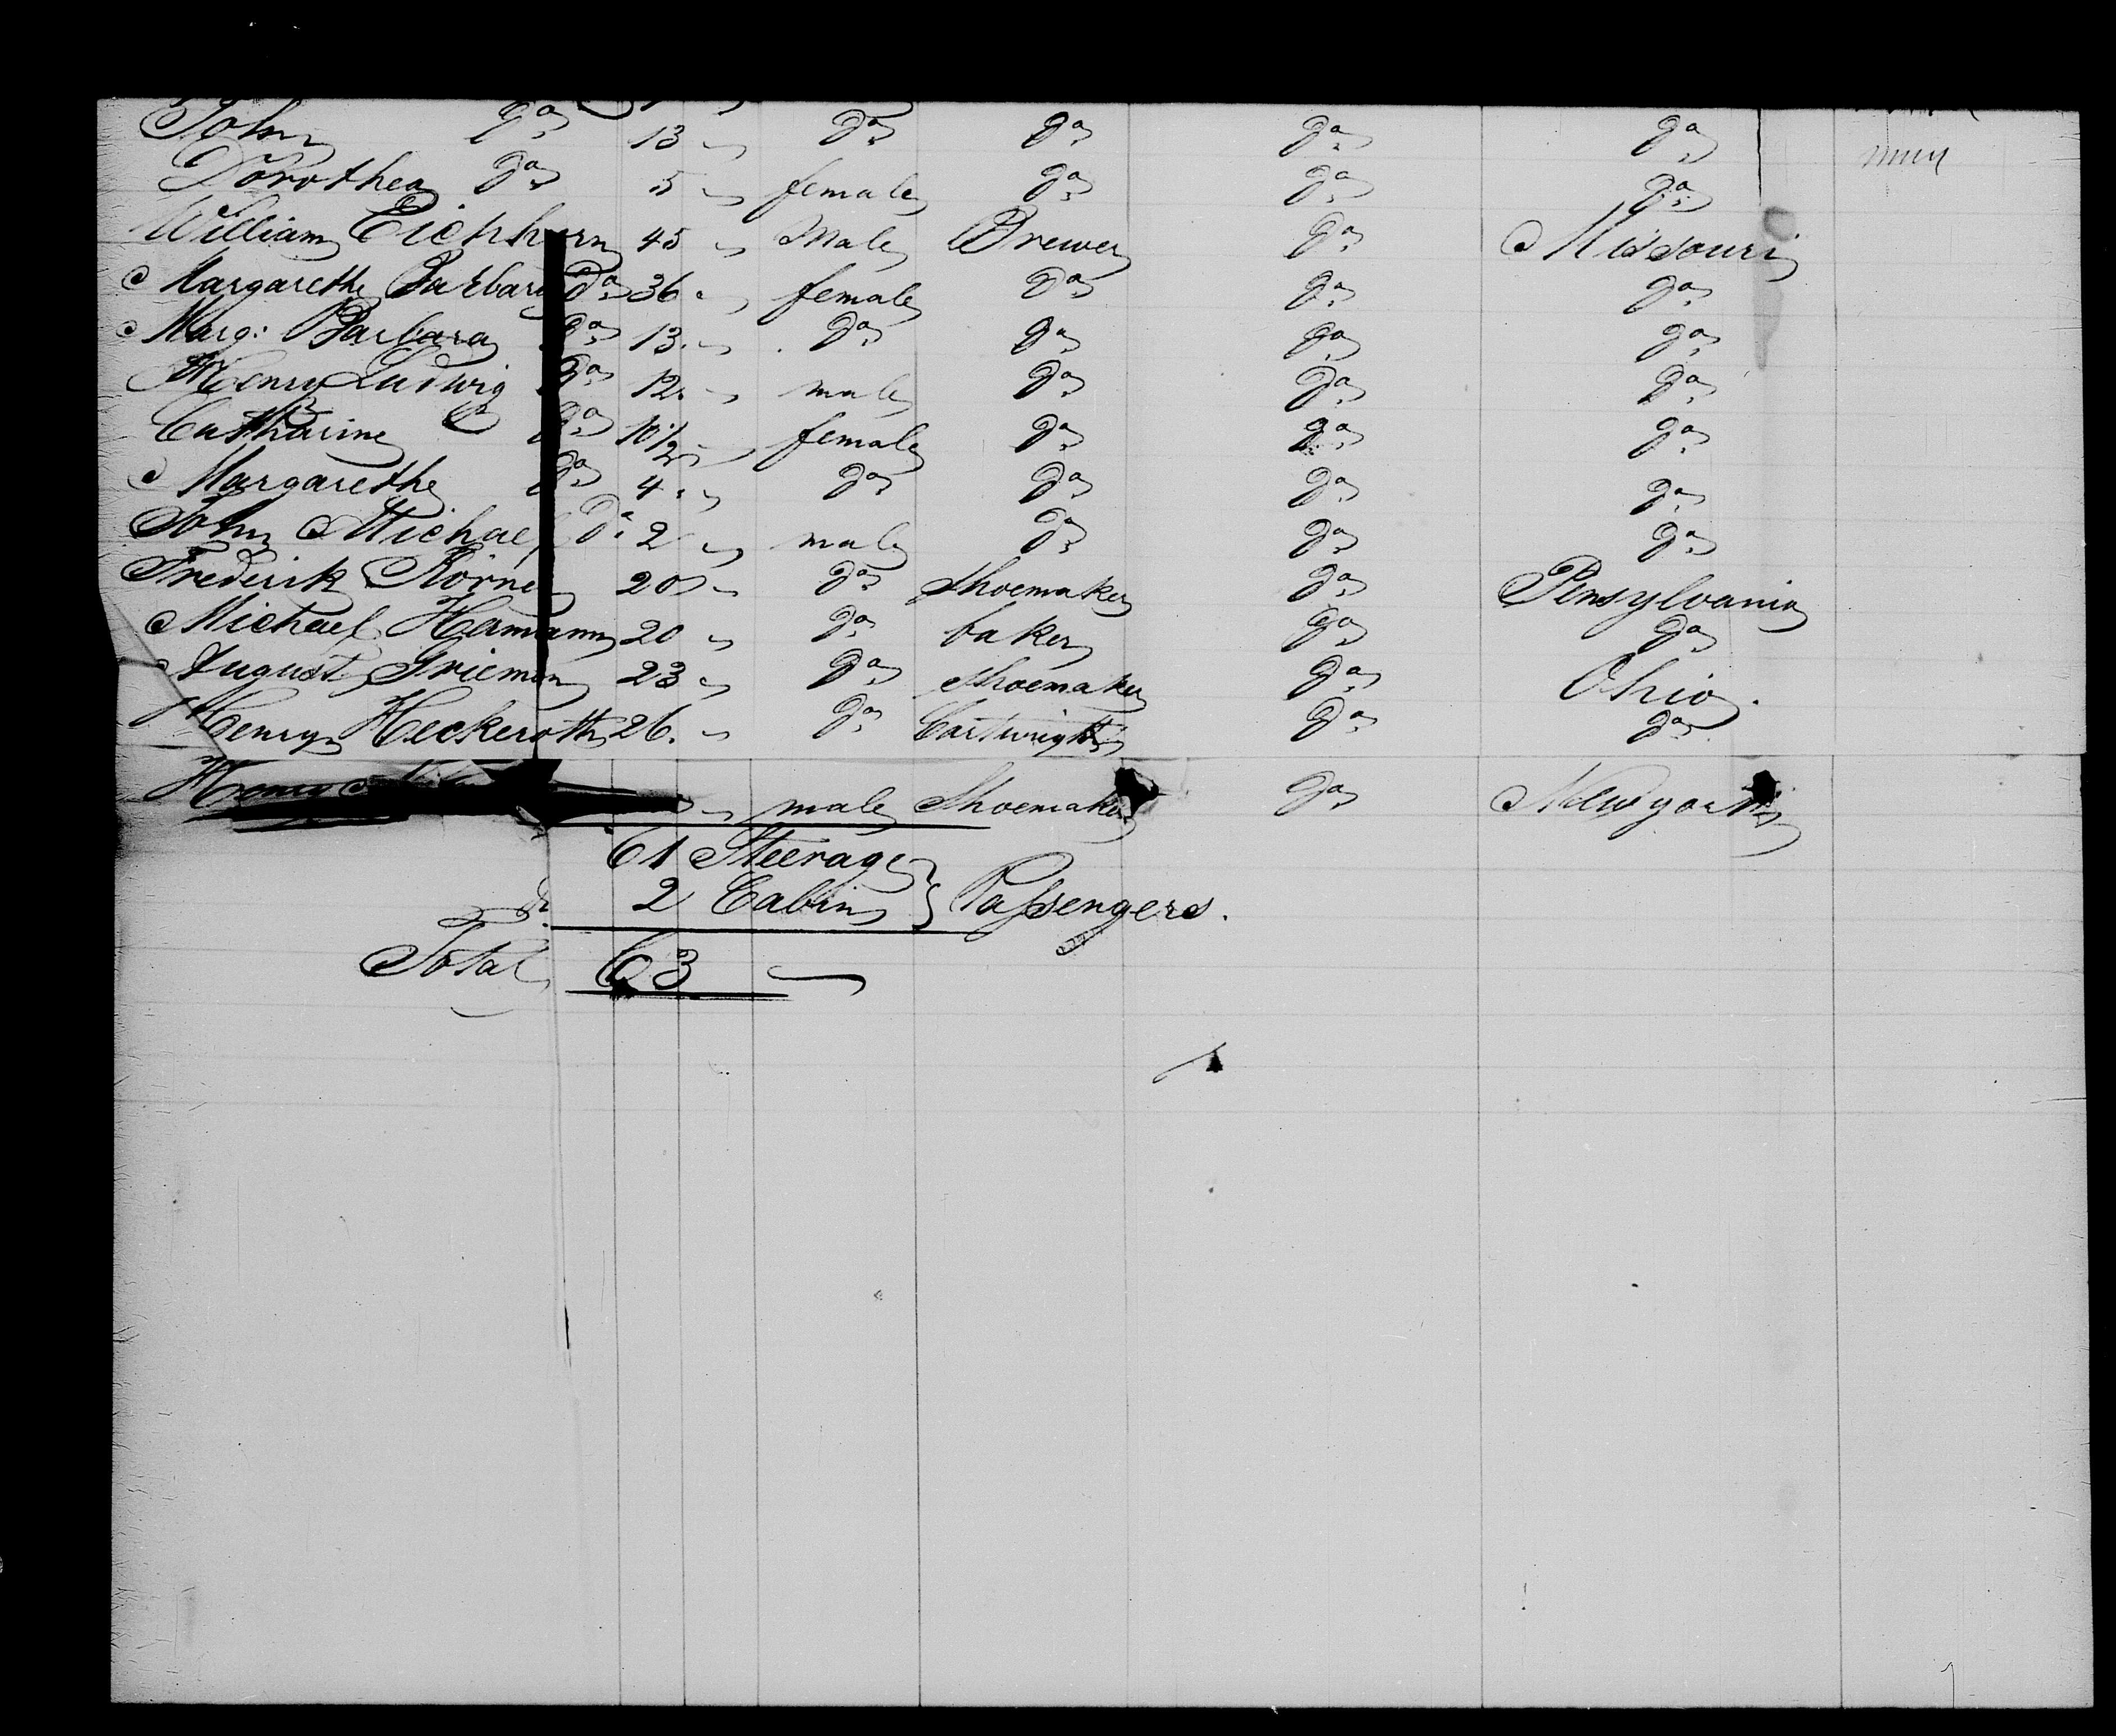 John do 13 do do do do
Dorothea do 5 female do do do
William Eichhorn 45 Male Brewer do Missouri
Margarethe Barbara do 36 female do do do
Marg: Barbara do 13 do do do do
Henry Ludwig do 12 male do do do
Catharine do 10 1/2 female do do do
Margarethe do 4 do do do do
John Michael do 2 male do do do
Frederik 20 do Shoemaker do Pensylvania
Michael Hermann 20 do baker do do
August 23 do Shoemaker do Ohio.
Henry Heckeroth 26. do Cartwright do do
Henry male Shoemaker do New york
61 Steerage
& 2 Cabin } Passengers.
Total 63